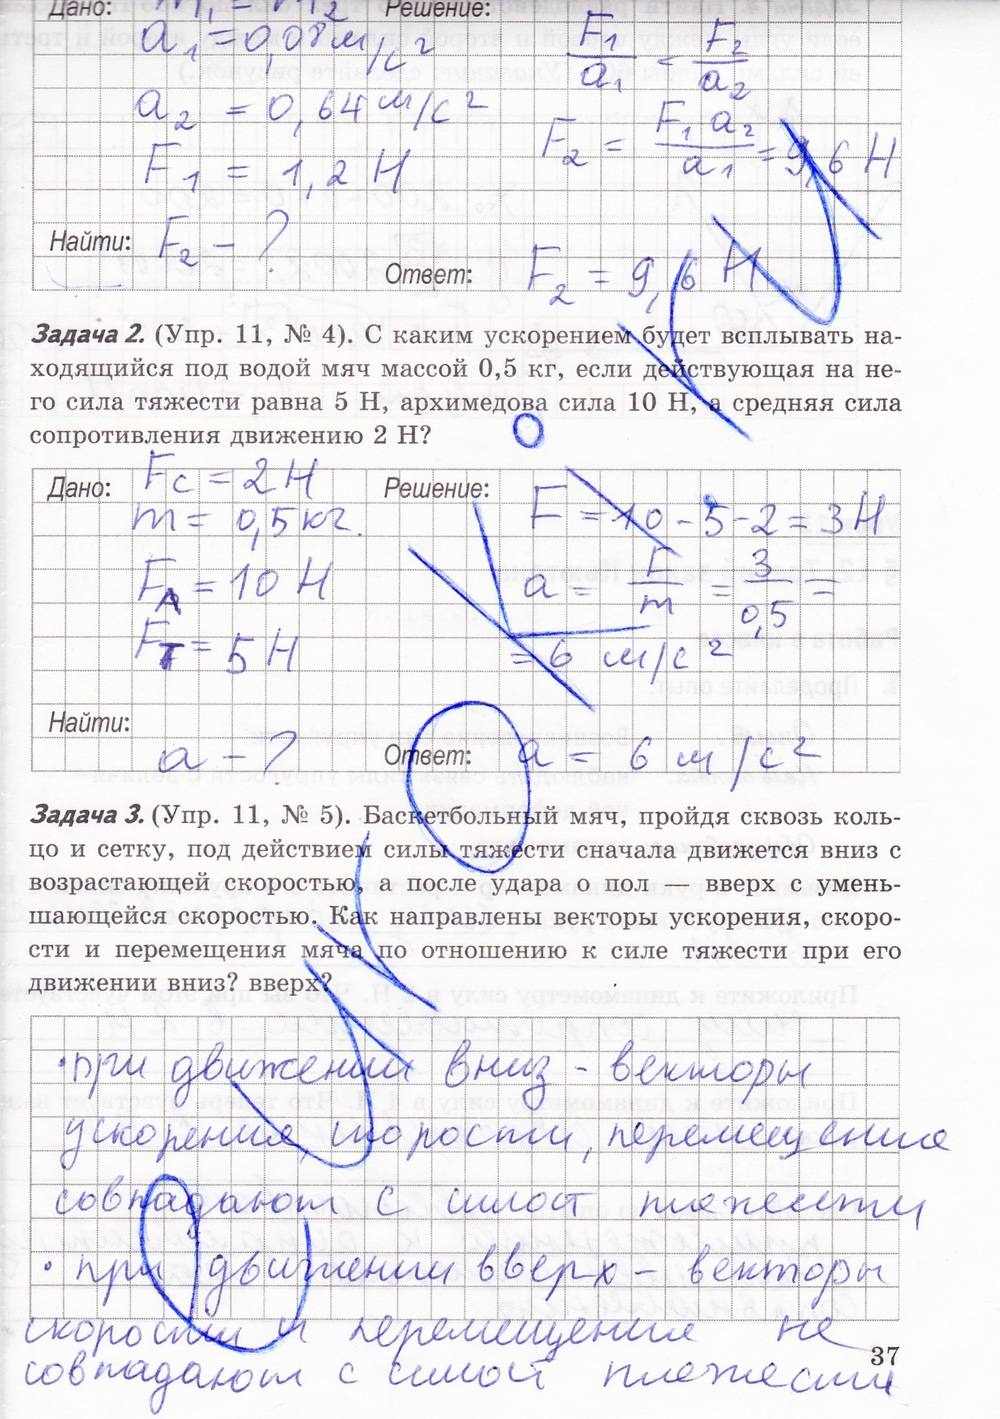 Дано: m₁ = m₂ Решение:
a₁ = 0,08 м/с² F₁/a₁ = F₂/a₂
a₂ = 0,64 м/с²
F₂ = F₁ a₂ / a₁ = 9,6 Н
F₁ = 1,2 Н
Найти: F₂ - ?
Ответ: F₂ = 9,6 Н
Задача 2. (Упр. 11, № 4). С каким ускорением будет всплывать на-
ходящийся под водой мяч массой 0,5 кг, если действующая на не-
го сила тяжести равна 5 Н, архимедова сила 10 Н, а средняя сила
сопротивления движению 2 Н?
Дано: Fс = 2Н Решение: F = 10 - 5 - 2 = 3Н
m = 0,5 кг.
FА = 10 Н a = F/m = 3/0,5 =
FТ = 5 Н = 6 м/с²
Найти:
a - ? Ответ: a = 6 м/с²
Задача 3. (Упр. 11, № 5). Баскетбольный мяч, пройдя сквозь коль-
цо и сетку, под действием силы тяжести сначала движется вниз с
возрастающей скоростью, а после удара о пол — вверх с умень-
шающейся скоростью. Как направлены векторы ускорения, скоро-
сти и перемещения мяча по отношению к силе тяжести при его
движении вниз? вверх?
• при движении вниз - векторы
ускорения, скорости, перемещение
совпадают с силой тяжести
• при движении вверх - векторы
скорости и перемещения не
совпадают с силой тяжести
37